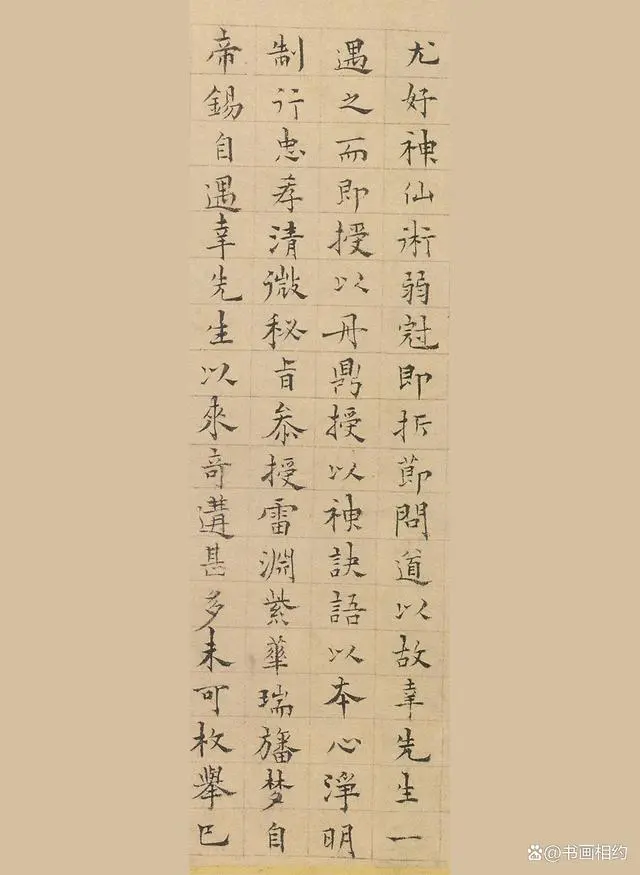 尤好神仙術弱冠即折節問道以故幸先生一
遇之而即授以丹鼎授以神訣語以本心淨明
制行忠孝清微秘旨叅授雷淵紫華瑞旛梦自
帝錫自遇幸先生以來奇遘甚多未可枚舉巳
@书画相约